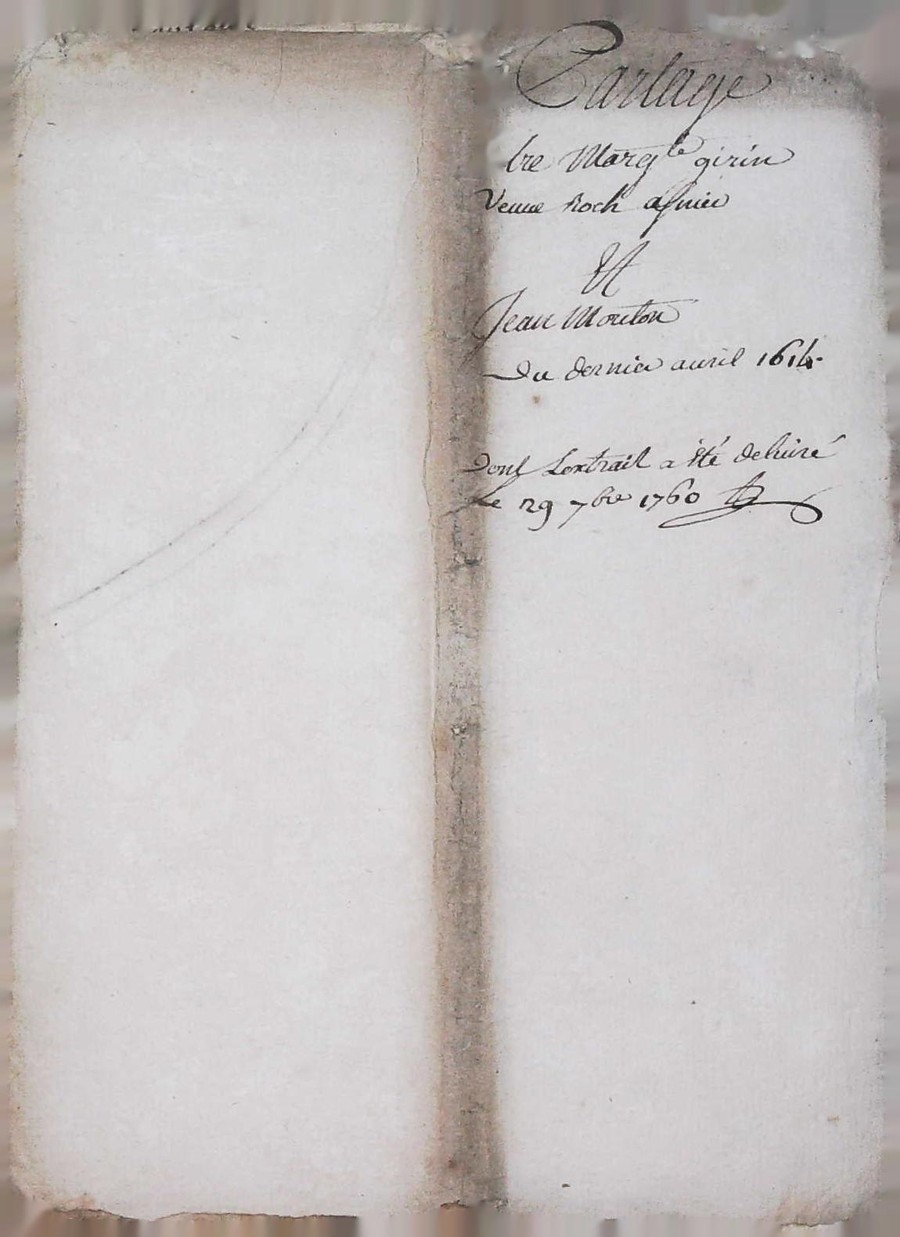 Partage
tre Marg.te girin
Veuue Roch asnier
Et
Jean Mouton
Du dernier auril 1614.
Dont Lextrait a été deliuré
Le 29 7bre 1760